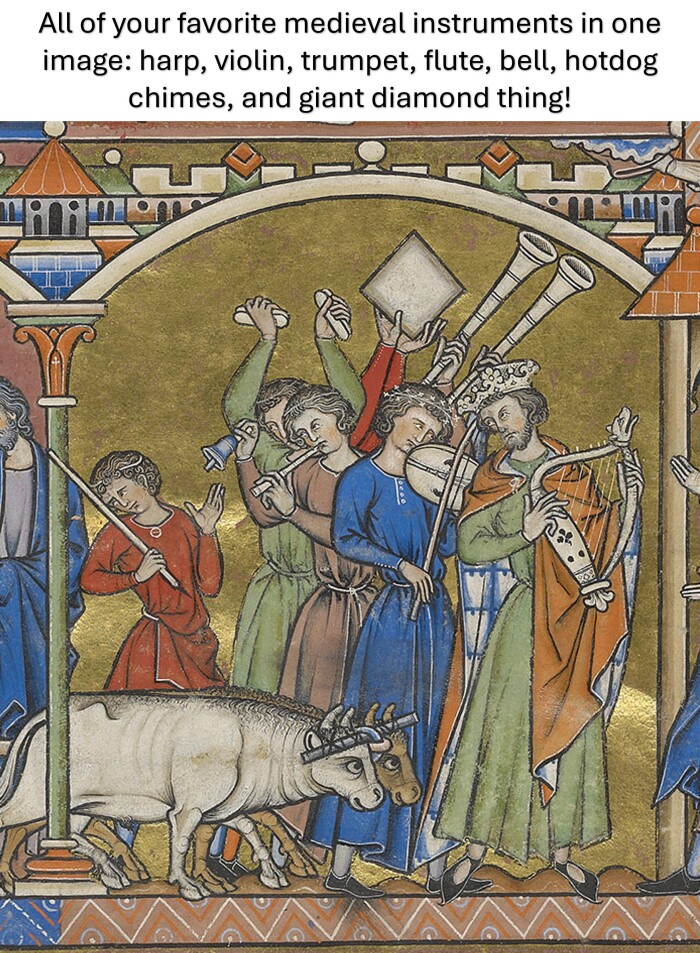 All of your favorite medieval instruments in one
image: harp, violin, trumpet, flute, bell, hotdog
chimes, and giant diamond thing!